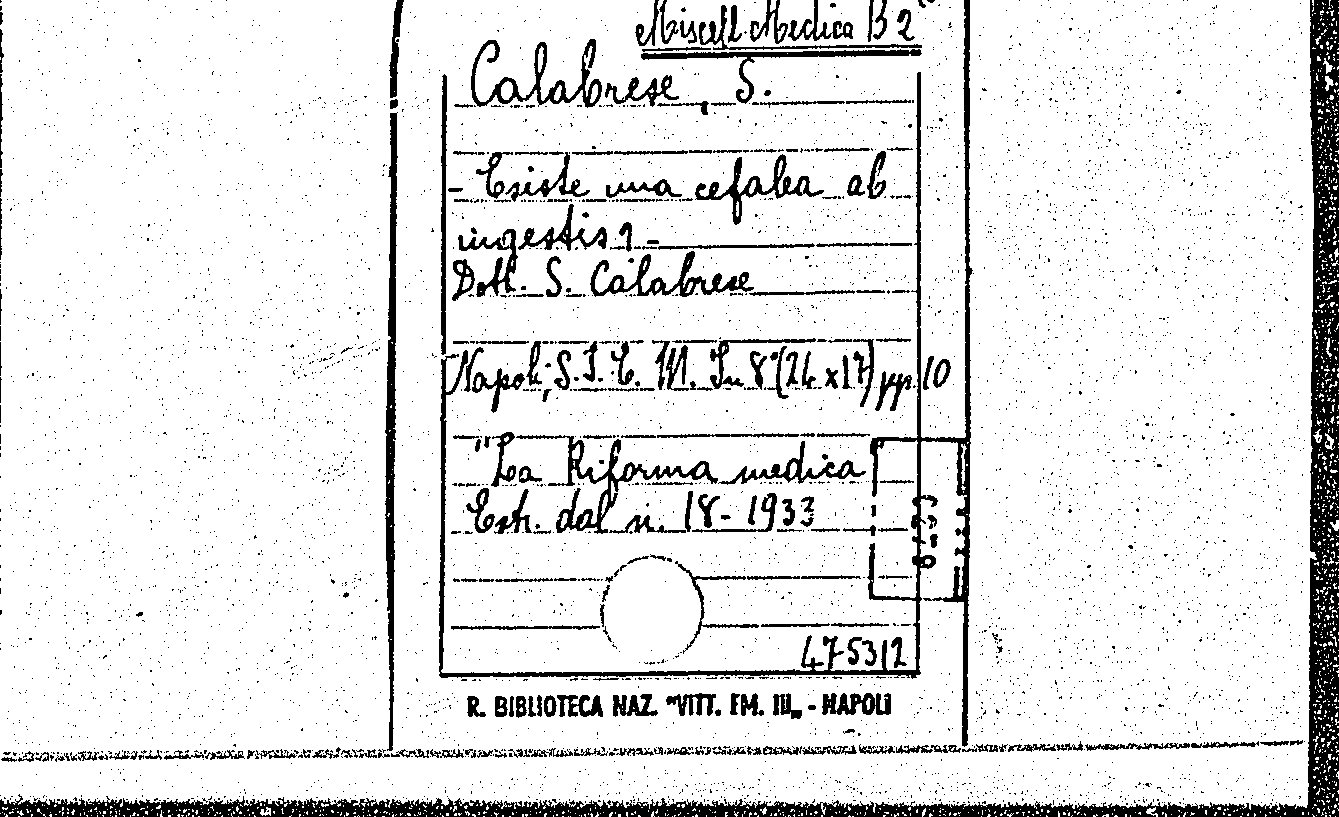 Miscell. Medica B 2
Calabrese, S.
- Esiste una cefalea ab
ingestis? -
Dott. S. Calabrese
Napoli, S.I.E.M. In 8° (24 x 17) pp 10
"La Riforma medica
Estr. dal n. 18 - 1933
475312
R. BIBLIOTECA NAZ. "VITT. EM. III„ - NAPOLI